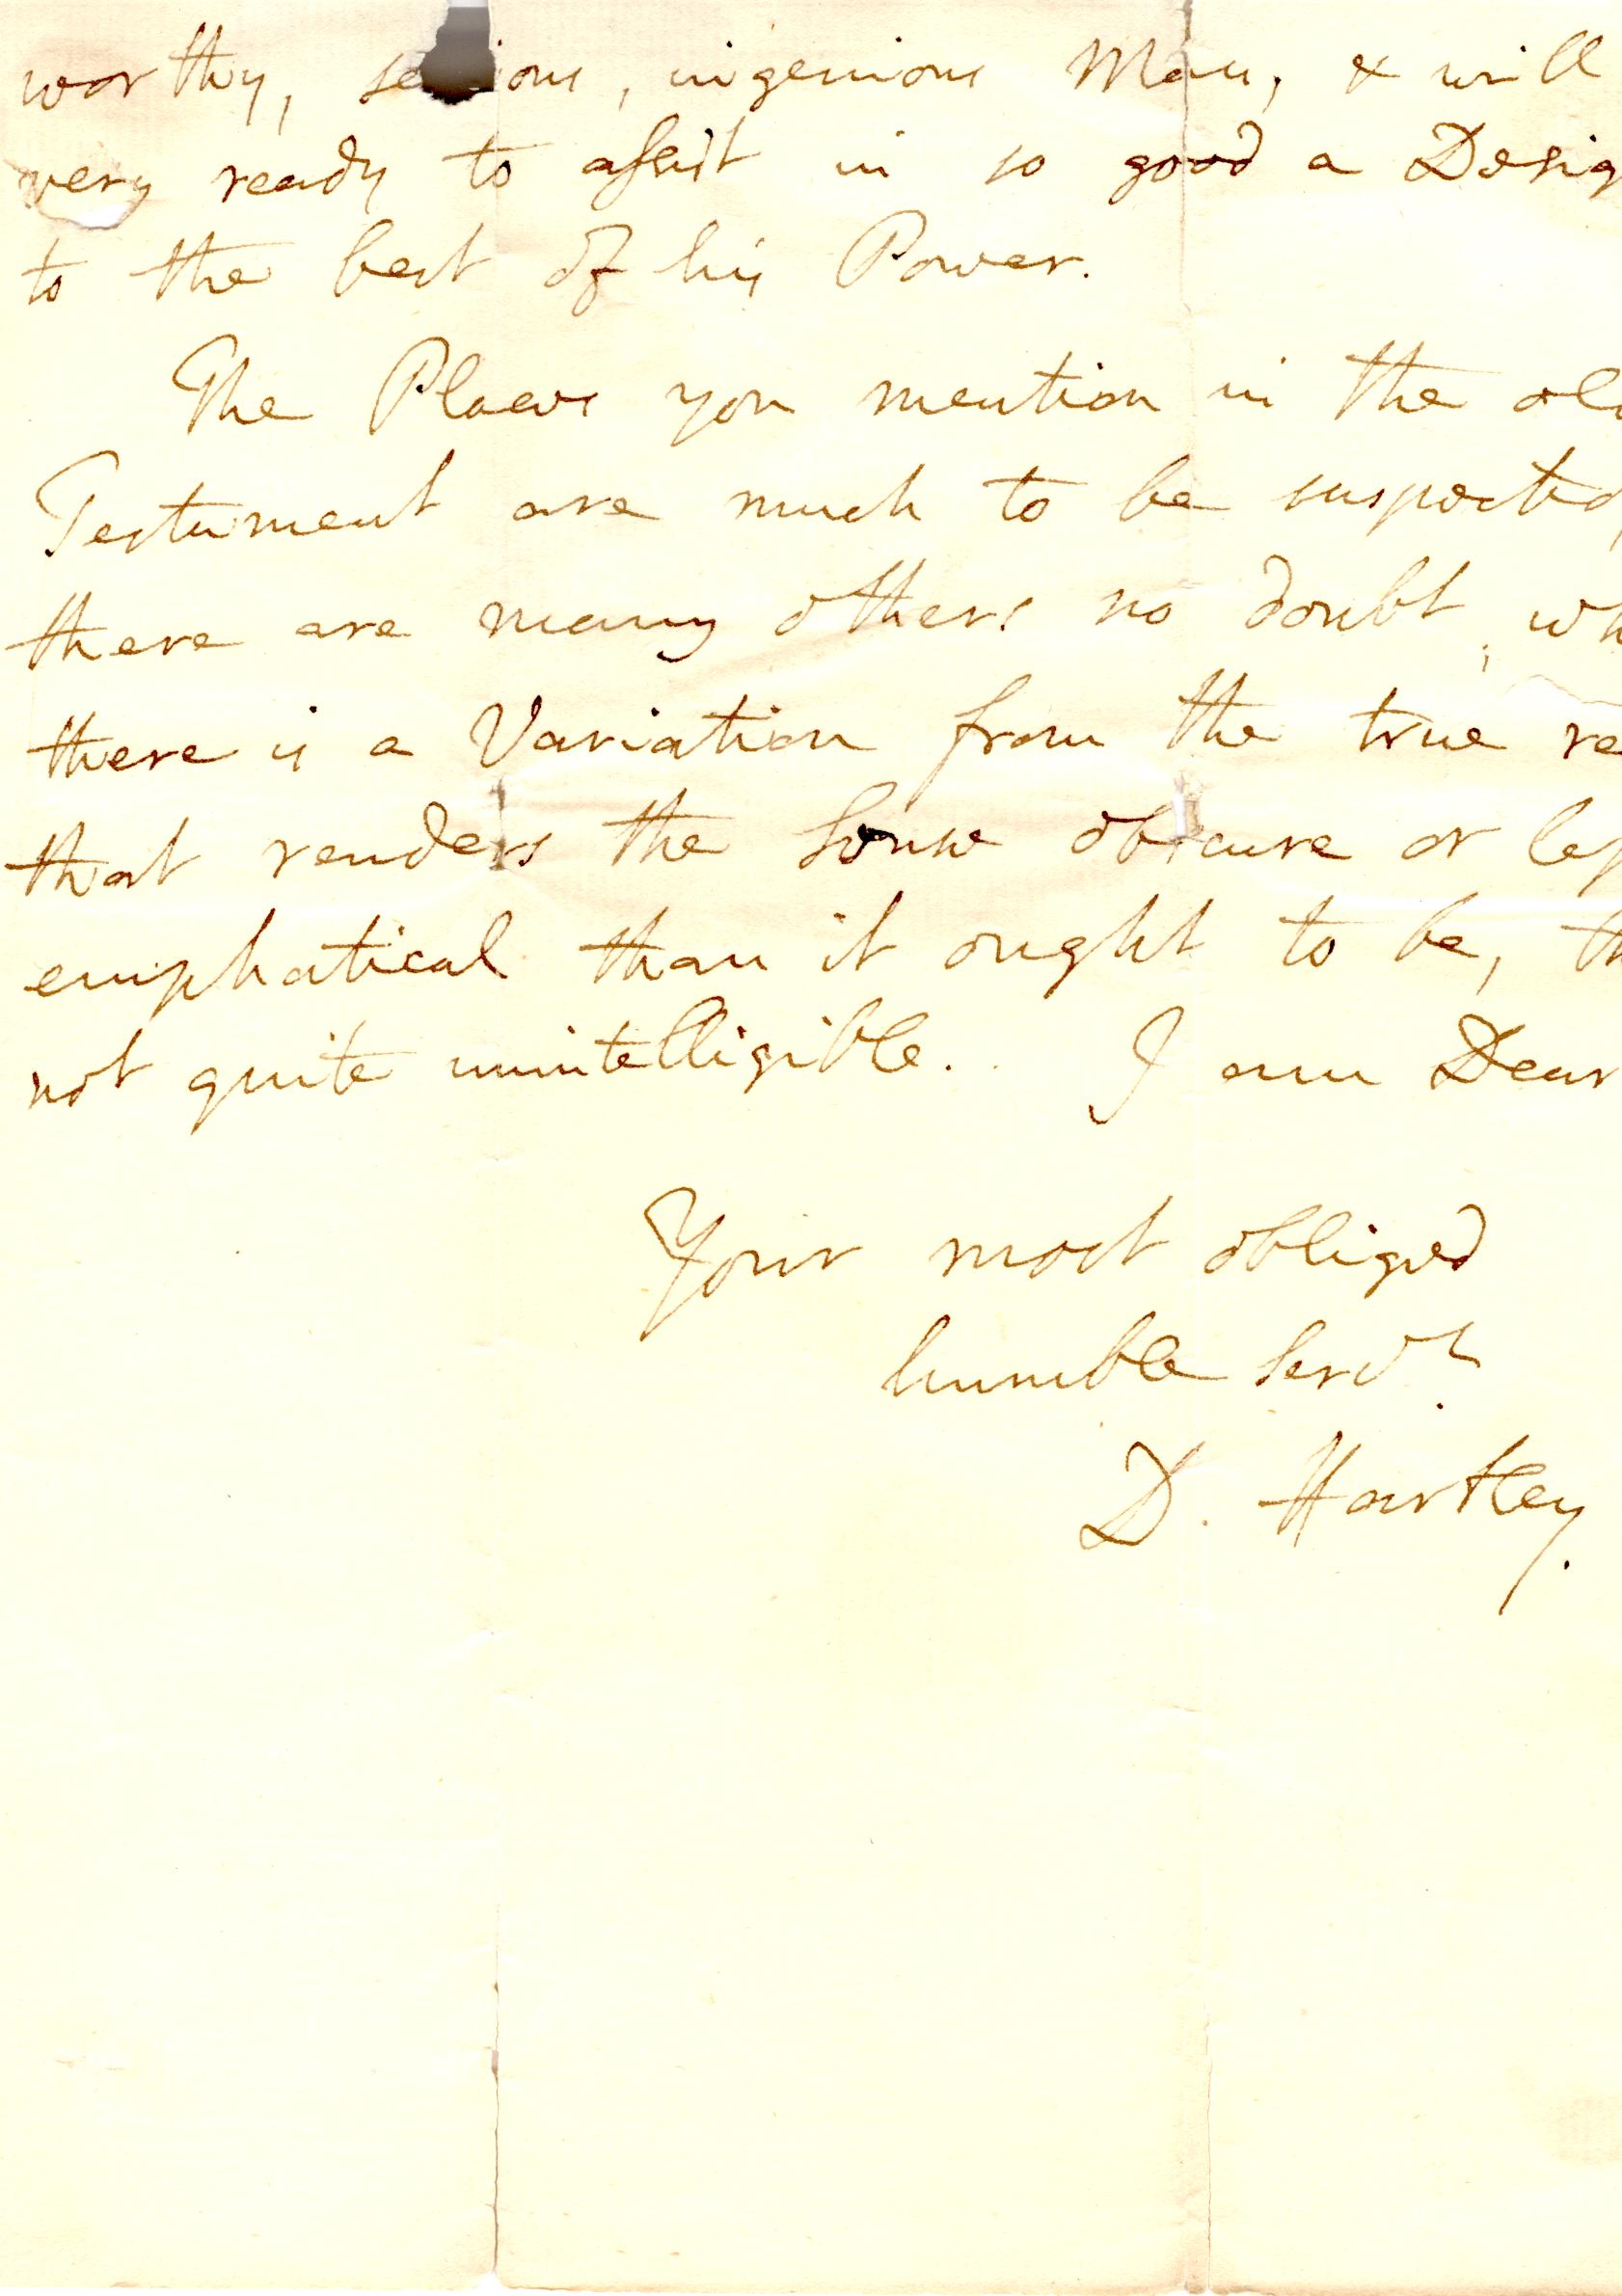 worthy, se ious, ingenious Man, & will
very ready to assist in so good a Desig
to the best of his Power.
The Places you mention in the old
Testament are much to be suspected,
there are many others no doubt, wh
there is a Variation from the true re
that renders the Sense obscure or less
emphatical than it ought to be, th
not quite unintelligible. I am Dear
Your most obliged
humble Servt.
D. Hartley.